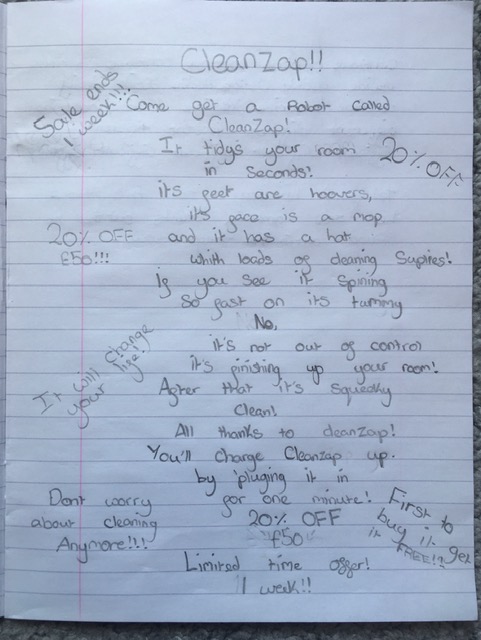 CleanZap!!
Sale ends
1 week!!!
Come get a Robot called
CleanZap!
It tidys your room
in Seconds!
20% OFF
its feet are hoovers,
it's face is a mop
20% OFF
£50!!!
and it has a hat
whith loads of cleaning Suplires!
If you see it Spining
So fast on its tummy
No,
it's not out of control
it's finishing up your room!
It will change
your life!
After that it's squeaky
Clean!
All thanks to cleanZap!
You'll charge CleanZap up.
by pluging it in
for one minute!
Dont worry
about cleaning
Anymore!!!
20% OFF
£50
First to
buy it get
it FREE!!
Limited time offer!
1 week!!